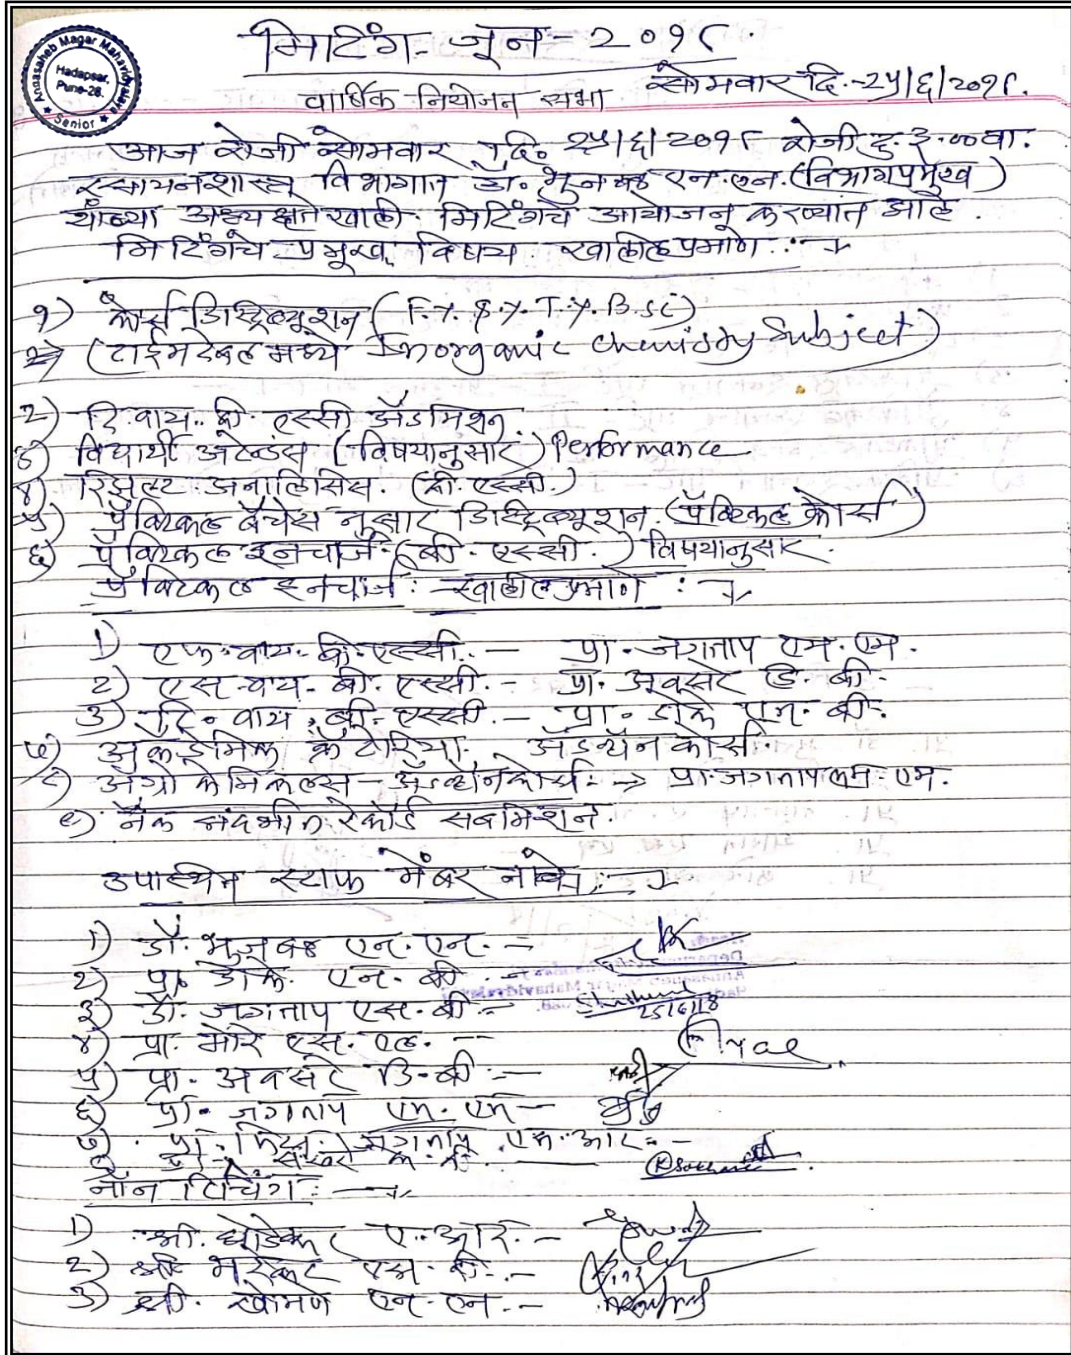 Annasaheb Magar Mahavidyalaya
Hadapsar,
Pune-28.
Senior
मिटिंग- जून - २०१८.
वार्षिक नियोजन सभा सोमवार दि.-२५/६/२०१८.
आज रोजी सोमवार दि. २५/६/२०१८ रोजी दु. ३.००वा.
रसायनशास्त्र विभागात डॉ. भुजबळ एन.एन. (विभागप्रमुख)
यांच्या अध्यक्षतेखाली मिटिंगचे आयोजन करण्यात आले.
मिटिंगचे प्रमुख विषय खालीलप्रमाणे :-
१) कोर्स डिस्ट्रिब्यूशन (F.Y. S.Y. T.Y. B.Sc)
(टाईमटेबल मध्ये Inorganic Chemistry Subject)
२) टि. वाय. बी. एस्सी अॅडमिशन.
३) विद्यार्थी अटेन्डंस (विषयानुसार) Performance
४) रिझल्ट अनालिसिस. (बी. एस्सी.)
५) प्रॅक्टिकल बॅचेस नुसार डिस्ट्रिब्यूशन (प्रॅक्टिकल कोर्स)
६) प्रॅक्टिकल इनचार्ज (बी. एस्सी.) विषयानुसार.
प्रॅक्टिकल इनचार्ज :- खालीलप्रमाणे :-
1) एफ. वाय. बी. एस्सी. - प्रा. जगताप एम. एम.
2) एस. वाय. बी. एस्सी. - प्रा. अवसरे डि. बी.
3) टि. वाय. बी. एस्सी. - प्रा. डोके एन. बी.
७) अॅकॅडेमिक क्रॅटेरिया
८) अॅग्रो केमिकल्स - अॅडव्हॉन कोर्स - → प्रा. जगताप एम. एम.
९) नॅक संदर्भात रेकॉर्ड सबमिशन.
उपास्थित स्टाफ मेंबर नावे :-
1) डॉ. भुजबळ एन. एन. -
२) प्रा. डोके एन. बी. -
३) डॉ. जगताप एस. बी. - 25/6/18
४) प्रा. मोरे एस. एल. -
५) प्रा. अवसरे डि. बी. -
६) प्रा. जगताप एम. एम -
७) प्रा. मिस. जगताप एम. आर. -
नॉन टिचिंग :-
1) श्री. घोडेकर ए. आर. -
2) श्री
3) श्री. खोमणे एन. एन. -